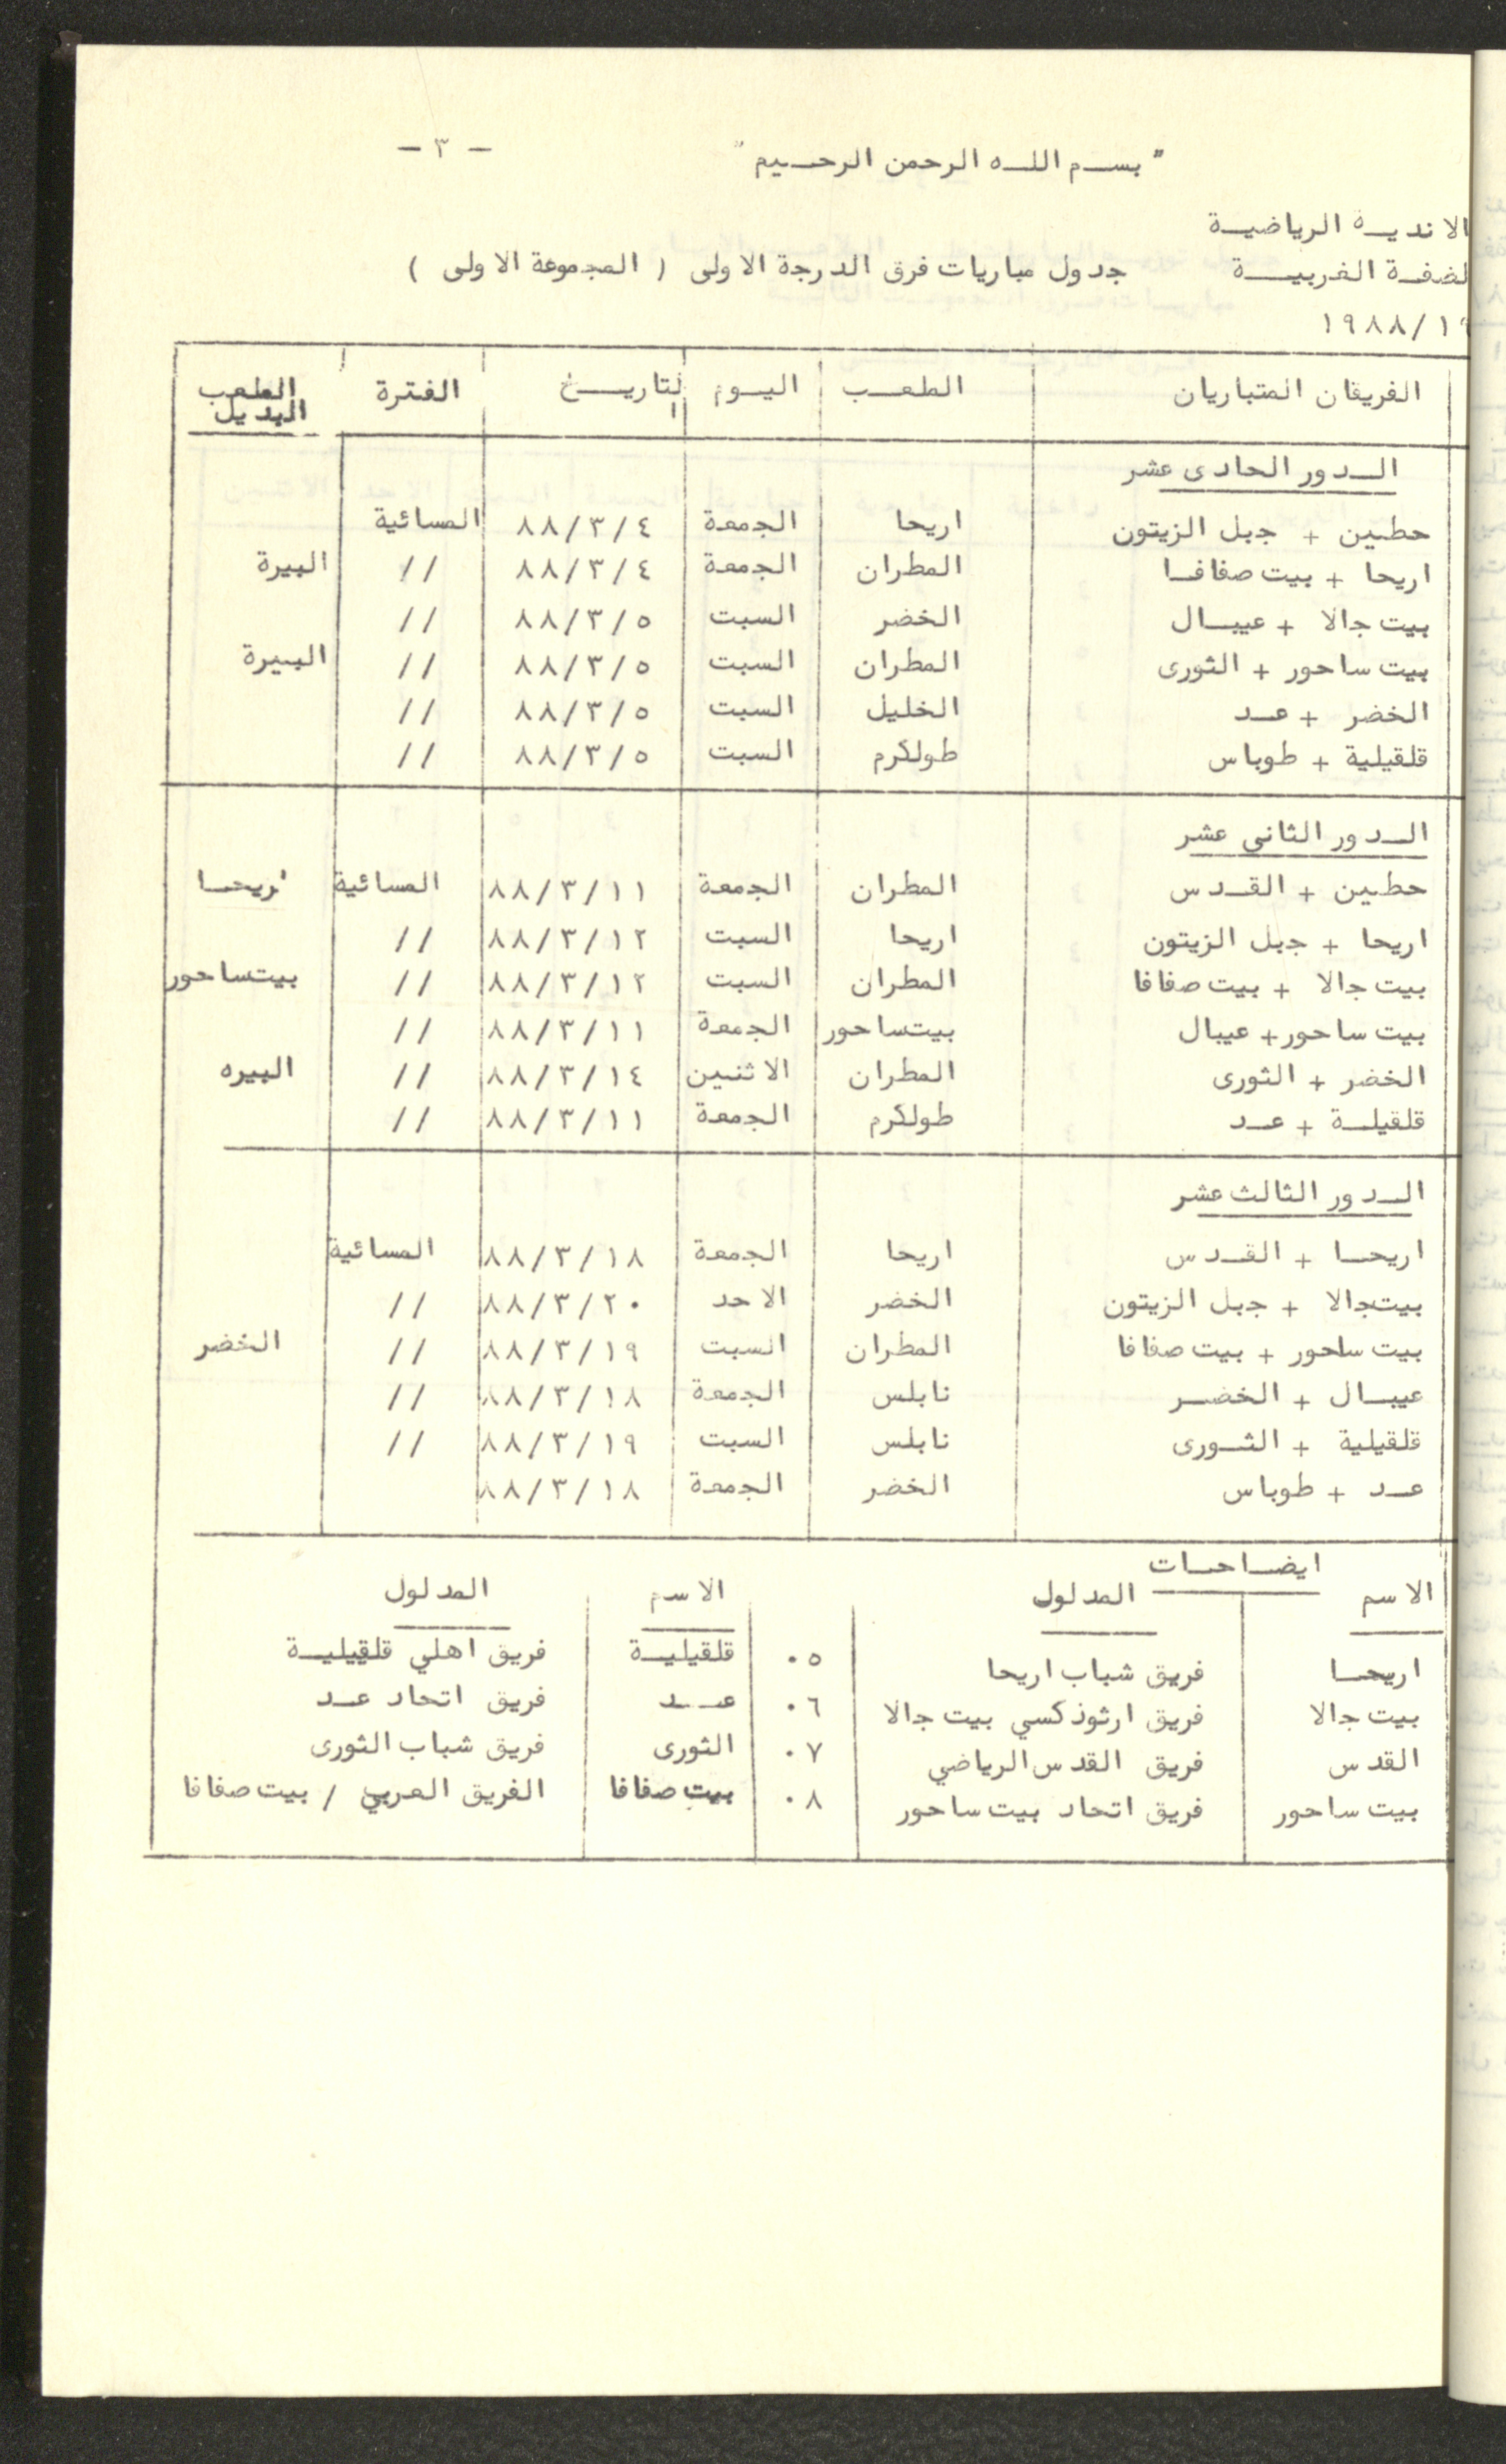 - ٣ -
" بسم الله الرحمن الرحيم "
الاندية الرياضية
لضفة الغربية جدول مباريات فرق الدرجة الاولى ( المجموعة الاولى )
١٩٨٨/
الفريقان المتباريان الملعب اليوم التاريخ الفترة الملعب البديل
الدور الحادى عشر
حطين + جبل الزيتون اريحا الجمعة ٨٨/٣/٤ المسائية
اريحا + بيت صفافا المطران الجمعة ٨٨/٣/٤ // البيرة
بيت جالا + عيبال الخضر السبت ٨٨/٣/٥ //
بيت ساحور + الثورى المطران السبت ٨٨/٣/٥ // البيرة
الخضر + عد الخليل السبت ٨٨/٣/٥ //
قلقيلية + طوباس طولكرم السبت ٨٨/٣/٥ //
الدور الثاني عشر
حطين + القدس المطران الجمعة ٨٨/٣/١١ المسائية اريحا
اريحا + جبل الزيتون اريحا السبت ٨٨/٣/١٢ //
بيت جالا + بيت صفافا المطران السبت ٨٨/٣/١٢ // بيتساحور
بيت ساحور + عيبال بيتساحور الجمعة ٨٨/٣/١١ //
الخضر + الثورى المطران الاثنين ٨٨/٣/١٤ // البيره
قلقيلة + عد طولكرم الجمعة ٨٨/٣/١١ //
الدور الثالث عشر
اريحا + القدس اريحا الجمعة ٨٨/٣/١٨ المسائية
بيتجالا + جبل الزيتون الخضر الاحد ٨٨/٣/٢٠ //
بيت ساحور + بيت صفافا المطران السبت ٨٨/٣/١٩ // الخضر
عيبال + الخضر نابلس الجمعة ٨٨/٣/١٨ //
قلقيلية + الثورى نابلس السبت ٨٨/٣/١٩ //
عد + طوباس الخضر الجمعة ٨٨/٣/١٨
ايضاحات
الاسم المدلول الاسم المدلول
اريحا فريق شباب اريحا ٠٥ قلقيلية فريق اهلي قلقيلية
بيت جالا فريق ارثوذكسي بيت جالا ٠٦ عد فريق اتحاد عد
القدس فريق القدس الرياضي ٠٧ الثورى فريق شباب الثورى
بيت ساحور فريق اتحاد بيت ساحور ٠٨ بيت صفافا الفريق العربي / بيت صفافا